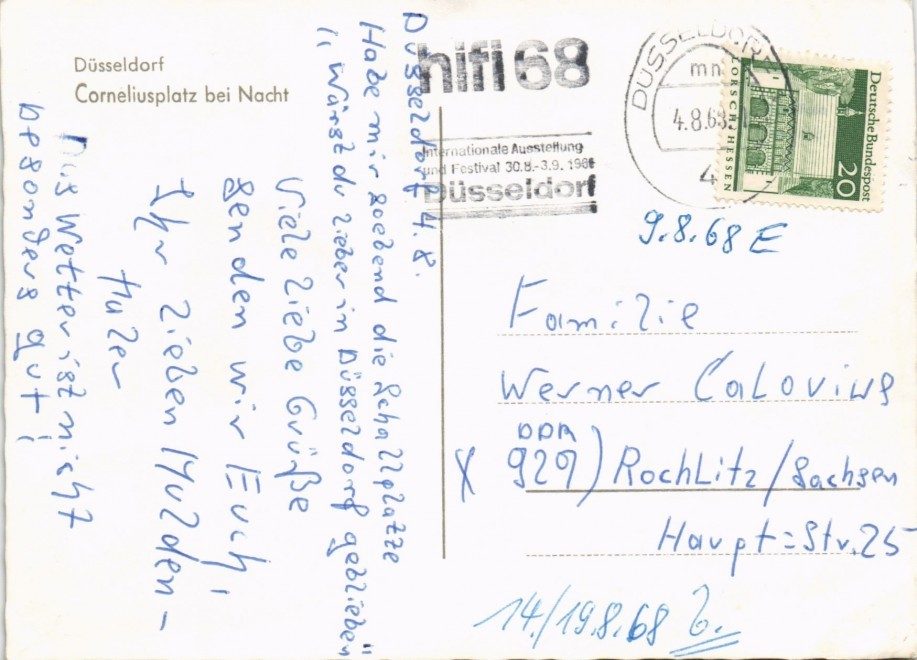 Düsseldorf
Corneliusplatz bei Nacht
Düsseldorf 4.8.
Habe mir soebend die Schallplatte
"Wärst du lieber in Düsseldorf geblieben"
Viele liebe Grüße
senden wir Euch,
Ihr lieben Mulden-
taler
Das Wetter ist nicht
besonders gut!
hifi 68
Internationale Ausstellung
und Festival 30.8.-3.9. 1968
Düsseldorf
DÜSSELDORF
mn
4.8.68
4
Deutsche Bundespost
20
LORSCH/HESSEN
9.8.68 E
Familie
Werner Calovius
DDR
X 929) Rochlitz/Sachsen
Haupt=Str. 25
14./19.8.68 b.